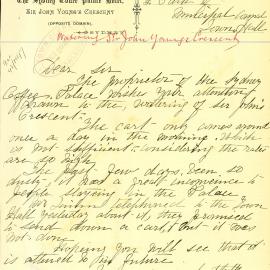 The Sydney Coffee Palace Hotel,
Sir John Young's Crescent
(OPPOSITE DOMAIN),
SYDNEY
Town Hall
Watering Sir John Young Crescent
Dear Sir
The proprietor of the Sydney
Coffee Palace wishes your attention
drawn to the watering of Sir John's
Crescent.
The cart only comes round
once a day in the morning. Which
is not sufficient considering the rates
are so high.
The past few days been so
dusty, it was a great annoyance to
people staying in the Palace.
telephoned to the Town
Hall yesterday about it, they promised
to send down a cart, but it was
not done.
Hoping you will see that it
is attended to in future.